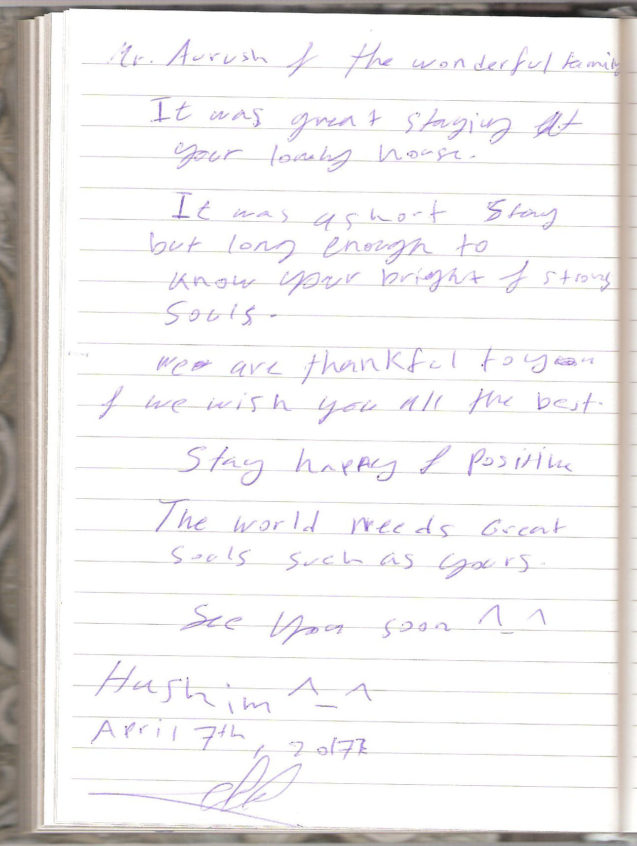 Mr. Aurush & the wonderful family
It was great staying at
your lovely house.
It was a short stay
but long enough to
know your bright & strong
souls.
We are thankful to you
& we wish you all the best.
Stay happy & positive
The world needs Great
souls such as yours.
See you soon ^_^
Hashim ^_^
April 7th, 2017